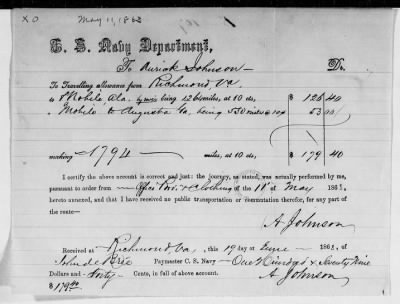 XO May 11, 1863
C. S. Navy Department,
To Johnson Dr.
To Travelling allowance from Richmond, Va.
to Mobile Ala. being 1264 miles, at 10 cts. $ 126 40
" Mobile to Augusta Ga, being 530 miles @ 10 53 00
making 1794 miles, at 10 cts. $ 179 40
I certify that the above account is correct and just: the journey, as stated, was actually performed by me,
pursuant to order from Office Prov. & Clothing of the 11th of May 186
hereto annexed, and that I have received no public transportation or commutation therefor, for any part of
the route—
A Johnson
Received at Richmond Va, this 19 day of June 186 , of
John de Bree Paymaster C. S. Navy One Hundred & Seventy Nine
Dollars and forty Cents, in full of above account.
$179 40 A Johnson